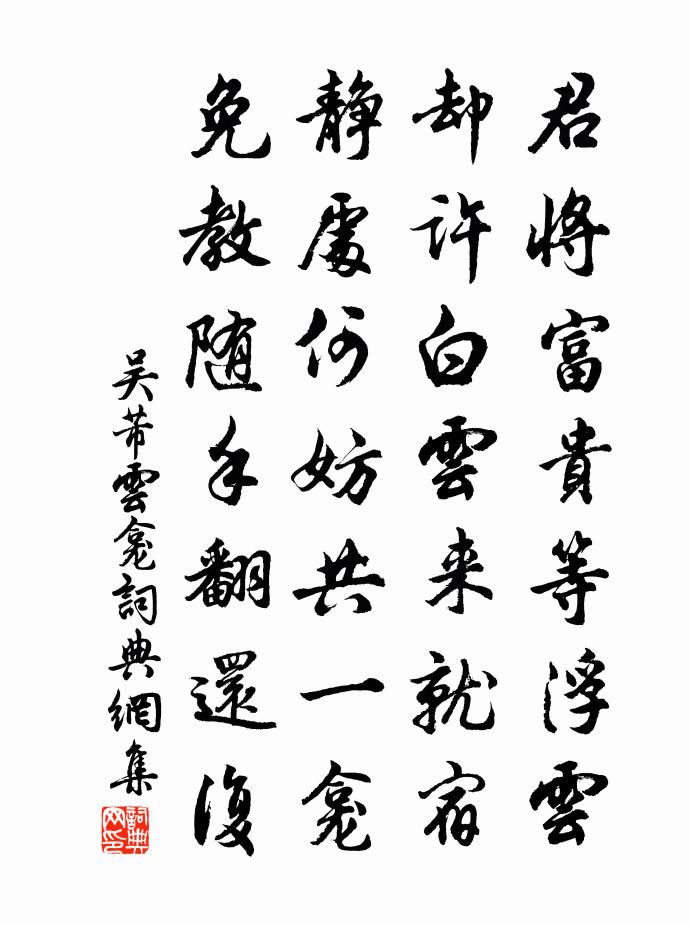 君將富貴等浮雲
却許白雲来就宿
静處何妨共一龛
免教随手翻還復
吴芾雲龛詞典網集
詞典网印